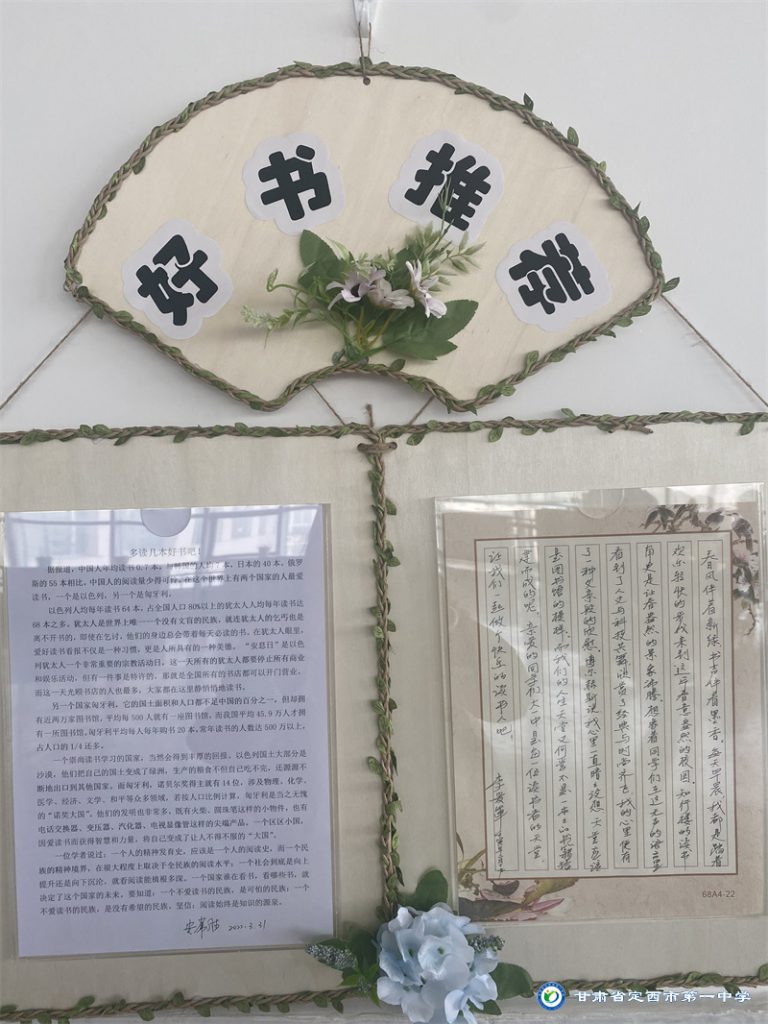 好书推荐
多读几本好书吧!
据报道,中国人年均读书0.7本,与韩国的人均7本,日本的40本,俄罗
斯的55本相比,中国人的阅读量少得可怜。在这个世界上有两个国家的人最爱
读书,一个是以色列,另一个是匈牙利。
以色列人均每年读书64本,占全国人口80%以上的犹太人人均每年读书达
68本之多。犹太人是世界上唯一一个没有文盲的民族,就连犹太人的乞丐也是
离不开书的,即使在乞讨,他们的身边总会带着每天必读的书。在犹太人眼里,
爱好读书看报不仅是一种习惯,更是人所具有的一种美德。“安息日”是以色
列犹太人一个非常重要的宗教活动日,这一天所有的犹太人都要停止所有商业
和娱乐活动,但有一件事是特许的,那就是全国所有的书店都可以开门营业,
而这一天光顾书店的人也最多,大家都在这里静悄悄地读书。
另一个国家匈牙利,它的国土面积和人口都不足中国的百分之一,但却拥
有近两万家图书馆,平均每500人就有一座图书馆,而我国平均45.9万人才拥
有一所图书馆。匈牙利平均每人每年购书20本,常年读书的人数达500万以上,
占人口的1/4还多。
一个崇尚读书学习的国家,当然会得到丰厚的回报。以色列国土大部分是
沙漠,他们把自己的国土变成了绿洲,生产的粮食不但自己吃不完,还源源不
断地出口到其他国家。而匈牙利,诺贝尔奖得主就有14位,涉及物理、化学、
医学、经济、文学、和平等众多领域,若按人口比例计算,匈牙利是当之无愧
的“诺奖大国”。他们的发明也非常多,既有火柴、圆珠笔这样的小物件,也有
电话交换器、变压器、汽化器、电视显像管这样的尖端产品,一个区区小国,
因爱读书而获得智慧和力量,将自己变成了让人不得不服的“大国”。
一位学者说过:一个人的精神发育史,应该是一个人的阅读史,而一个民
族的精神境界,在很大程度上取决于全民族的阅读水平;一个社会到底是向上
提升还是向下沉沦,就看阅读能植根多深。一个国家谁在看书,看哪些书,就
决定了这个国家的未来。要知道:一个不爱读书的民族,是可怕的民族;一个
不爱读书的民族,是没有希望的民族。坚信:阅读始终是知识的源泉。
2022.3.31
春风伴着新绿 书声伴着墨香。每天早晨 我都是踏着
欢乐轻快的步伐来到这洋溢着盎然的校园。知行楼的读书
角更是让春盎然的景象沸腾。想象着同学们在过去的
看到了人文与科技共舞 领略了经典与时尚齐飞 我的心里便有
了一种 的欣慰。博尔赫斯说 我心里一直暗暗设想 天堂应该
是图书馆的模样。而我们的人生天堂又何尝不是一本本的书籍
建而成的呢。亲爱的同学们
让我们一起做个快乐的读书人吧!
68A4-22
甘肃省定西市第一中学